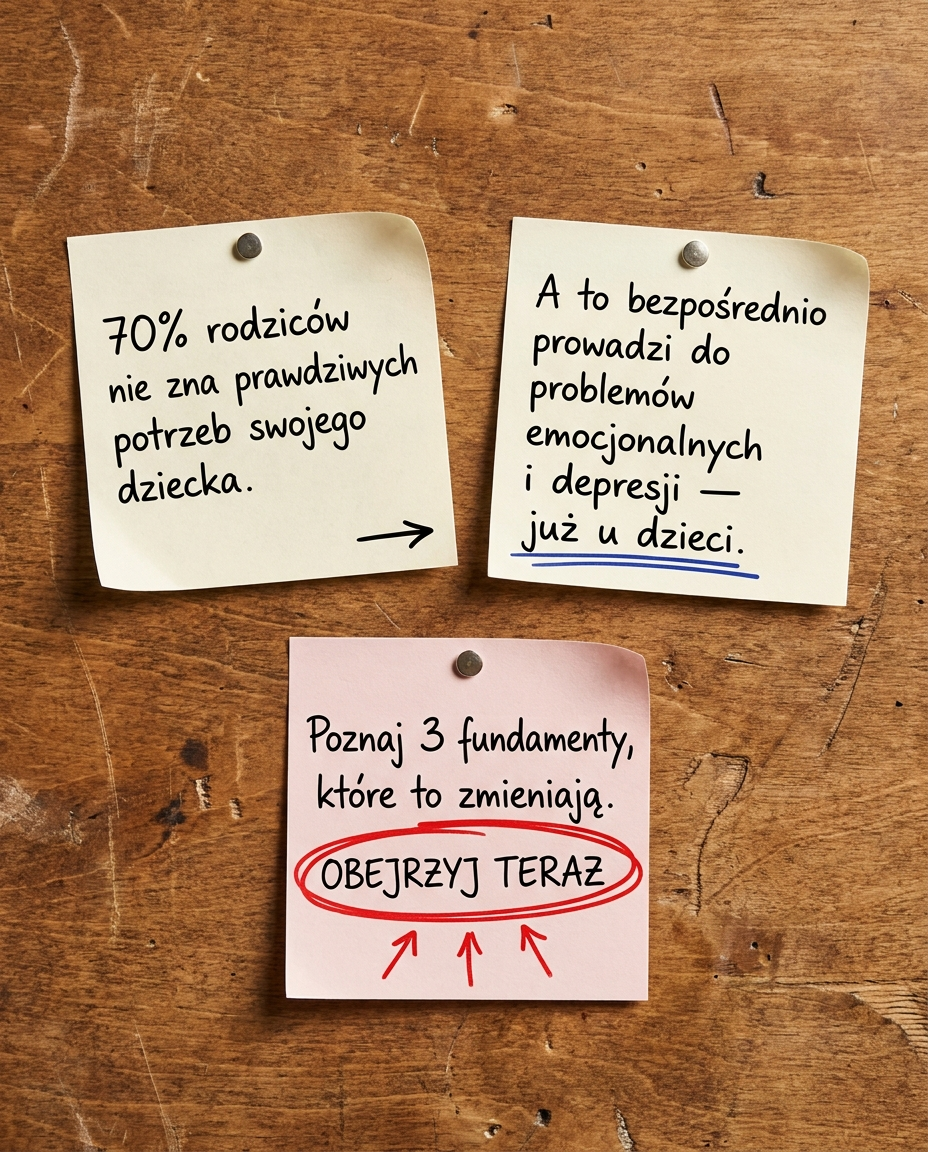 70% rodziców
nie zna prawdziwych
potrzeb swojego
dziecka.
A to bezpośrednio
prowadzi do
problemów
emocjonalnych
i depresji —
już u dzieci.
Poznaj 3 fundamenty,
które to zmieniają.
OBEJRZYJ TERAZ